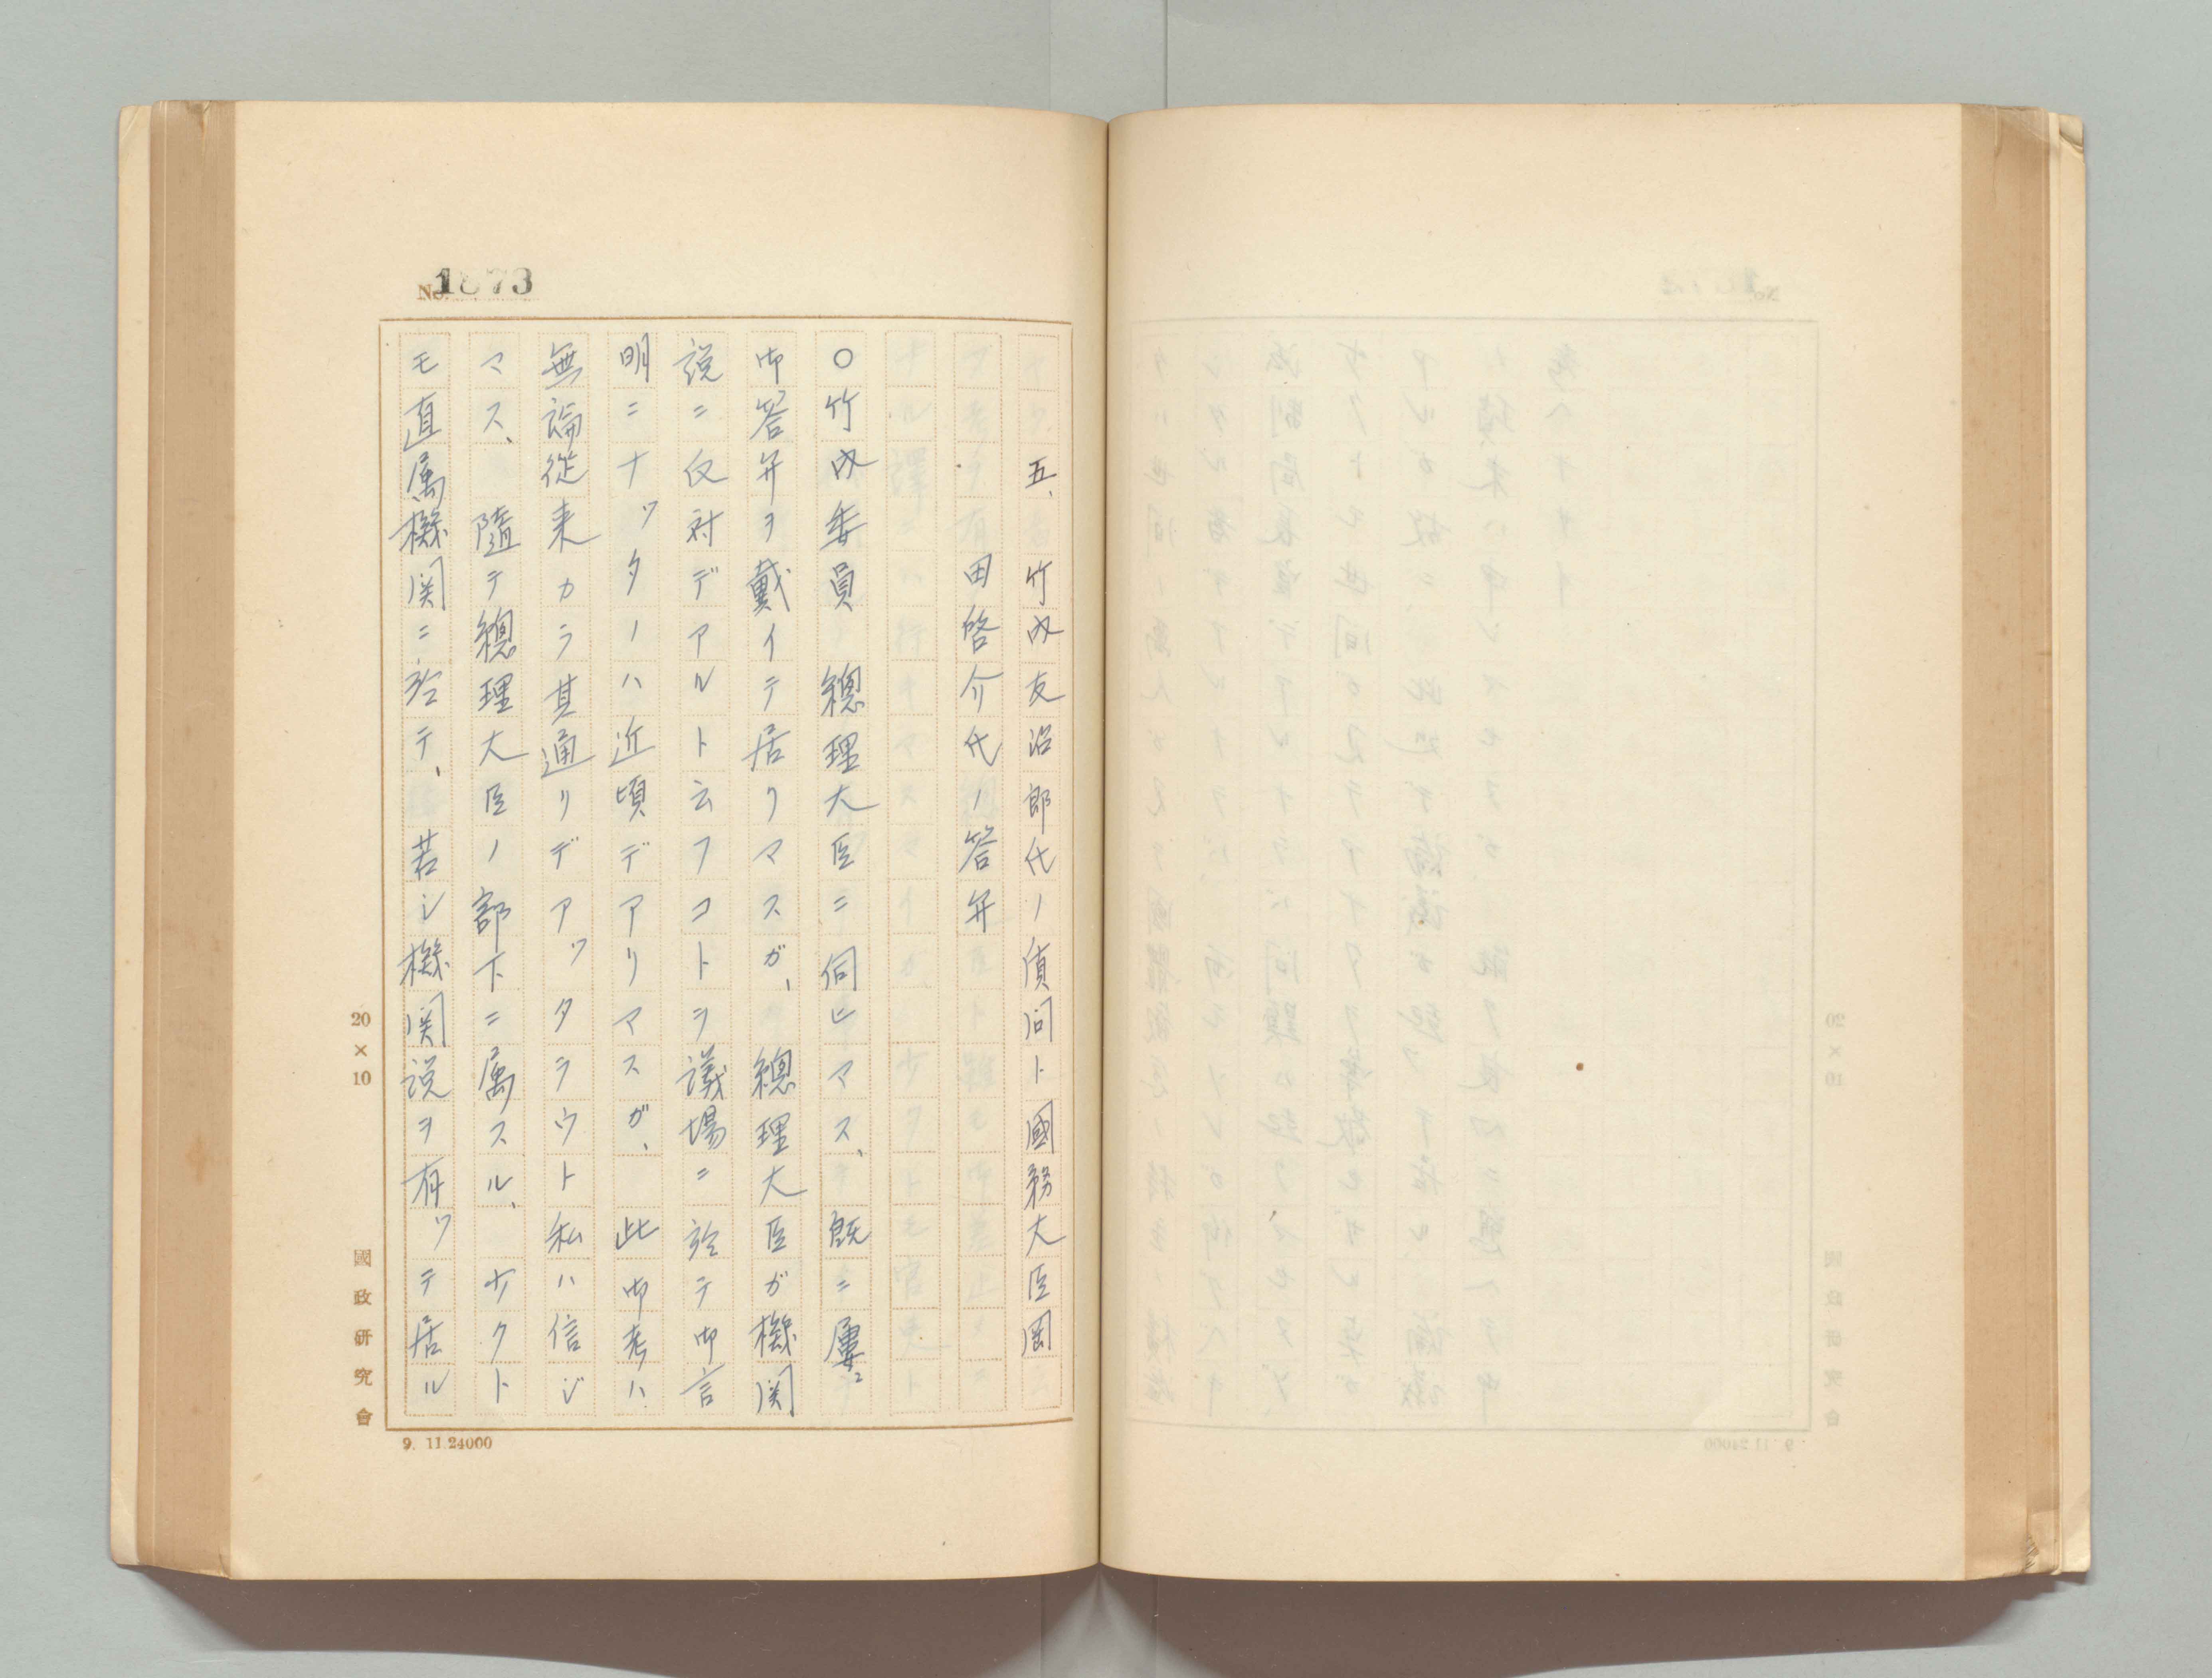 No. 1873
五、竹内友治郎氏ノ質問ト國務大臣岡
田啓介氏ノ答弁
〇竹内委員　總理大臣ニ伺ヒマス、既ニ屢〻
御答弁ヲ戴イテ居リマスガ、總理大臣ガ機関
説ニ反対デアルト云フコトヲ議場ニ於テ御言
明ニナッタノハ近頃デアリマスガ、此御考ハ
無論従来カラ其通リデアッタラウト私ハ信ジ
マス、隨テ總理大臣ノ部下ニ属スル、少クト
モ直属機関ニ於テ、若シ機関説ヲ有ッテ居ル
20×10
國政研究會
9. 11.24000